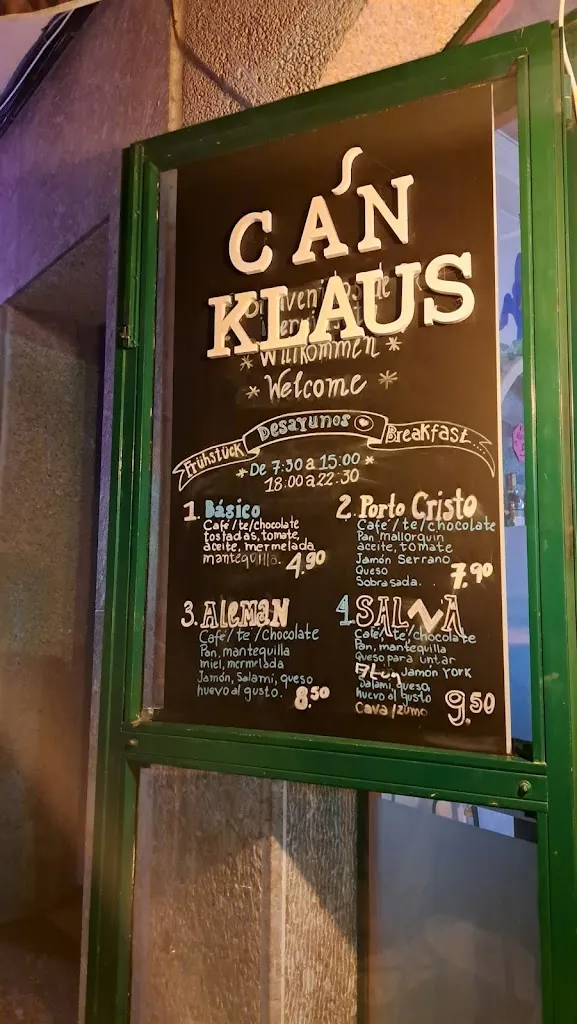 S
CA'N
KLAUS
Willkommen
Welcome
Desayunos
Frühstück
Breakfast...
De 7:30 a 15:00
18:00 a 22:30
1. Básico
Café/te/chocolate
tostadas, tomate,
aceite, mermelada
mantequilla. 4.90
2. Porto Cristo
Café/te/chocolate
Pan mallorquin
aceite, tomate
Jamón Serrano
Queso
Sobrasada. 7,90
3. ALEMAN
Café/te/chocolate
Pan, mantequilla
miel, mermelada
Jamón, Salami, queso
huevo al gusto. 8.50
4. SAL
Café, te, chocolate
Pan, mantequilla
Queso para untar
Jamón YORK
Salami, queso,
huevo al gusto
Cava/zumo 9.50